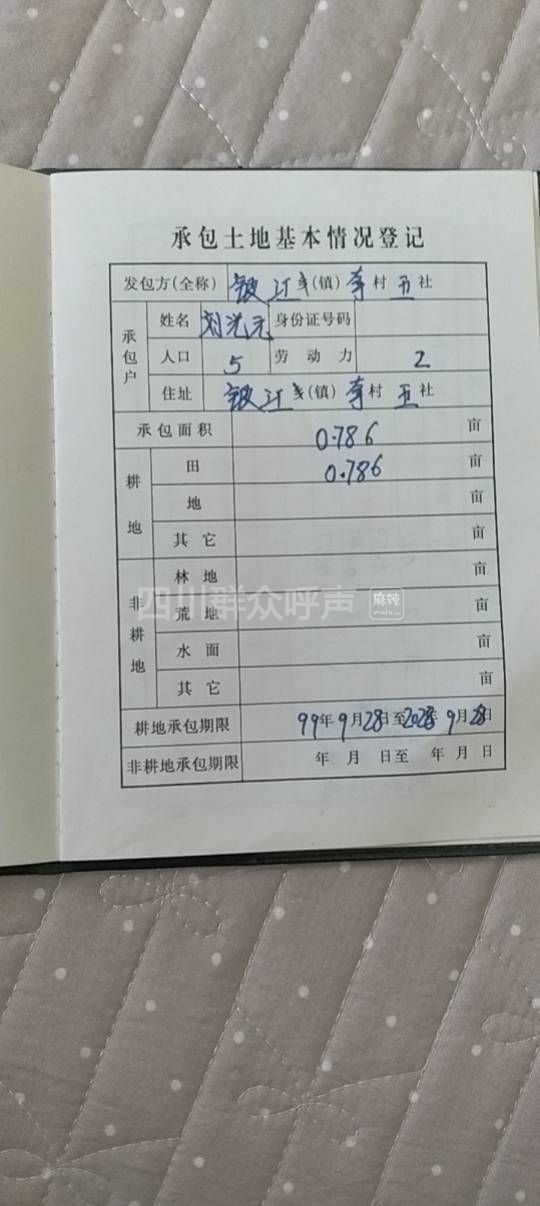 承包土地基本情况登记
发包方(全称) 江乡(镇) 李村五社
承包户
姓名 刘光元 身份证号码
人口 5 劳动力 2
住址 江乡(镇) 李村五社
承包面积 0.786 亩
耕地
田 0.786 亩
地 亩
其它 亩
非耕地
林地 亩
四川群众呼声 麻辣
荒地 亩
水面 亩
其它 亩
耕地承包期限 99年9月28日至2028年9月28日
非耕地承包期限 年 月 日至 年 月 日